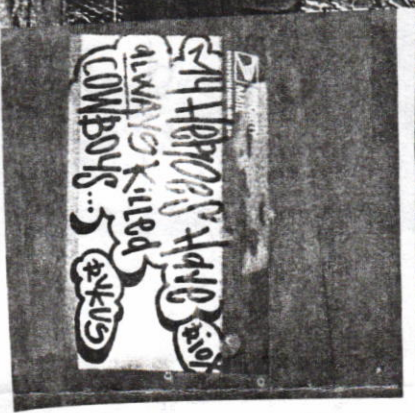 My Heroes Have
ALWAYS Killed
COWBOYS...